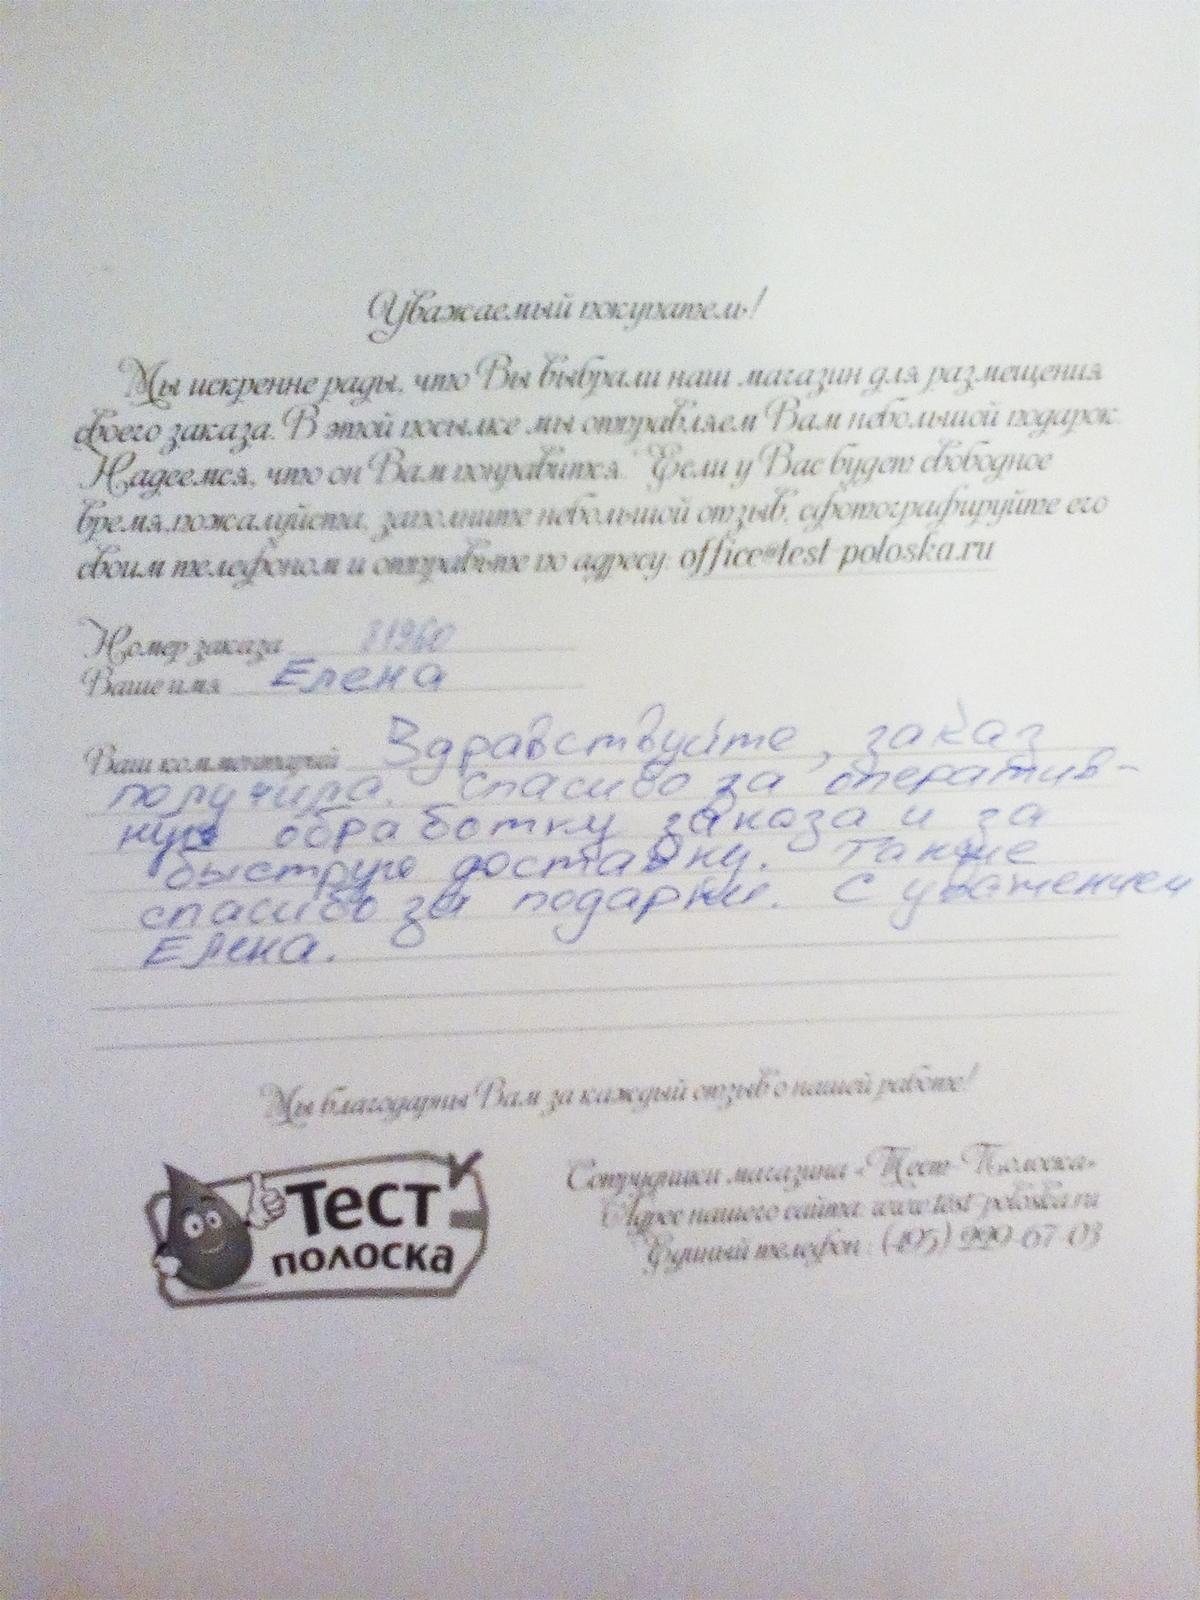 Уважаемый покупатель!
Мы искренне рады, что Вы выбрали наш магазин для размещения
своего заказа. В этой посылке мы отправляем Вам небольшой подарок.
Надеемся, что он Вам понравится. Если у Вас будет свободное
время, пожалуйста, заполните небольшой отзыв, сфотографируйте его
своим телефоном и отправьте по адресу: office@test-poloska.ru
Номер заказа 81960
Ваше имя Елена
Ваш комментарий Здравствуйте, заказ
получила. Спасибо за оператив-
ную обработку заказа и за
быструю доставку. Также
спасибо за подарки. С уважением
Елена.
Мы благодарны Вам за каждый отзыв о нашей работе!
Тест
полоска
Сотрудники магазина «Тест-Полоска»
Адрес нашего сайта: www.test-poloska.ru
Единый телефон: (495) 999-67-03